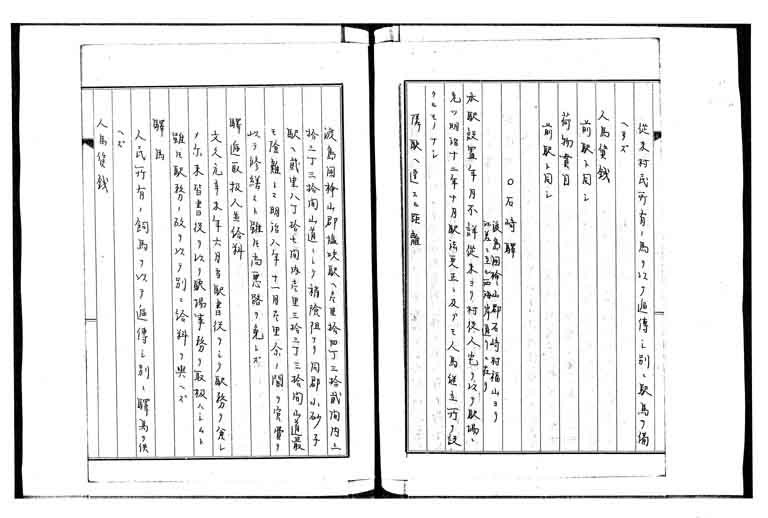 從来村民所有ノ馬ヲ以テ逓傳シ別ニ駅馬ヲ備
ヘス
人馬賃銭
前駅ト同シ
荷物貫目
前駅ト同シ
○石崎驛
渡島国檜山郡石崎村福山ヨリ
江差ニ至ル西海岸通リニ在リ
本駅設置年月不詳従来ヨリ村役人宅ヲ以テ駅場ニ
充ツ明治十二年十月駅治更正ニ及ヒ人馬継立所ヲ設
クルモノナシ
隣駅ヘ達スル距離
渡島国檜山郡塩吹駅ヘ壱里拾四丁三拾弐間内上
拾二丁三拾間山道ニシテ稍険阻ナリ同郡小砂子
駅ヘ弐里八丁拾七間内壱里三拾二丁三拾間山道最
モ険難トス明治八年十一月壱里余ノ間ヲ官費ヲ
以テ修繕スト雖尚悪路ヲ免レズ
驛逓取扱人並給料
文久元辛未年六月当駅書役ヲシテ駅務ヲ兼シ
メ尓来皆書役ヲ以テ駅場事務ヲ取扱ハシムト
雖モ駅務ノ故ヲ以テ別ニ給料ヲ與ヘズ
驛馬
人民所有ノ飼馬ヲ以テ逓傳シ別ニ驛馬ヲ供
ヘズ
人馬賃銭